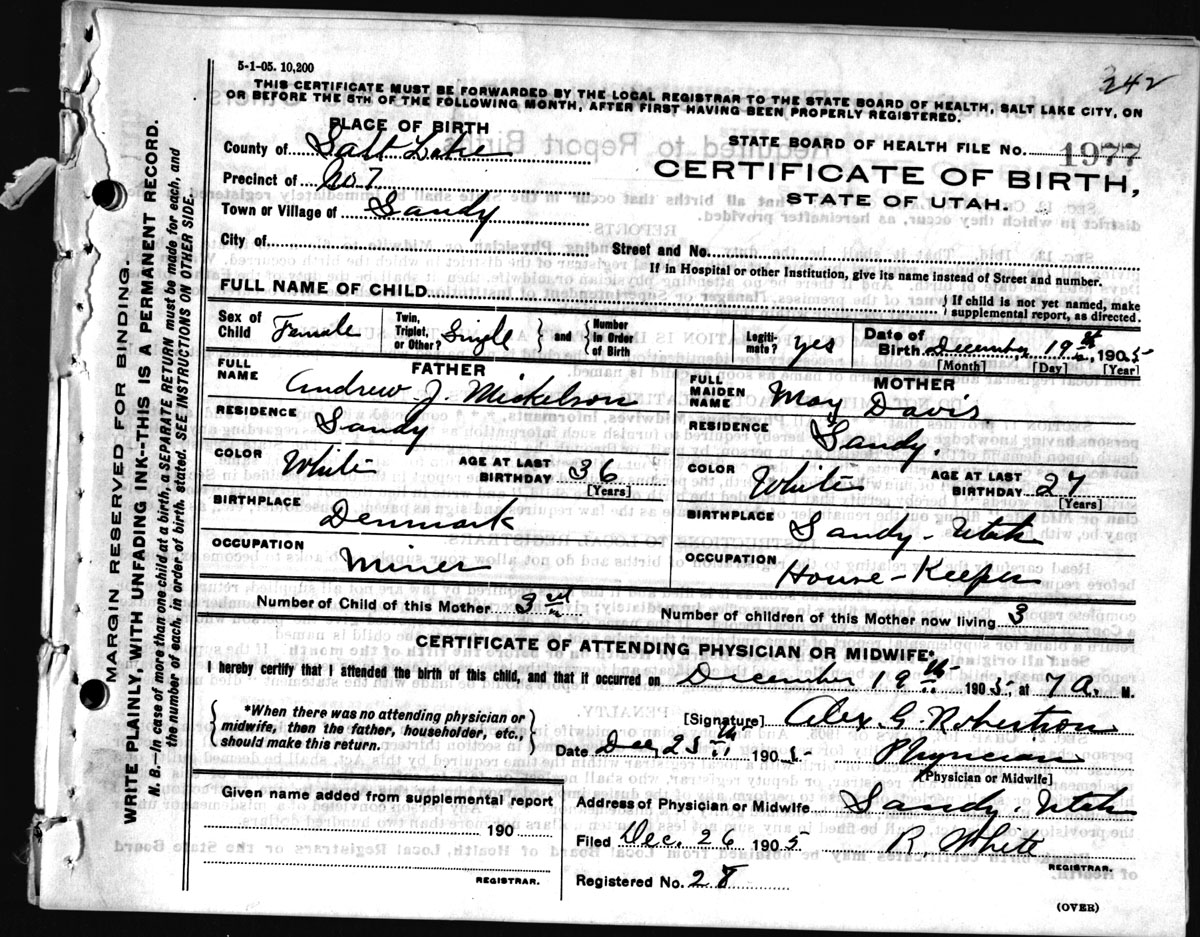 5-1-05. 10,200
242
THIS CERTIFICATE MUST BE FORWARDED BY THE LOCAL REGISTRAR TO THE STATE BOARD OF HEALTH, SALT LAKE CITY, ON
OR BEFORE THE 5TH OF THE FOLLOWING MONTH, AFTER FIRST HAVING BEEN PROPERLY REGISTERED.
PLACE OF BIRTH
County of Salt Lake
Precinct of No 7
Town or Village of Sandy
STATE BOARD OF HEALTH FILE NO. 1977
CERTIFICATE OF BIRTH,
STATE OF UTAH.
City of Street and No.
If in Hospital or other Institution, give its name instead of Street and number.
FULL NAME OF CHILD { If child is not yet named, make
supplemental report, as directed.
Sex of
Child Female
Twin,
Triplet,
or Other? Single } and { Number
in Order
of Birth
Legiti-
mate? yes
Date of
Birth December 19th, 1905
[Month] [Day] [Year]
FATHER
FULL
NAME Andrew J. Mickelson
RESIDENCE Sandy
COLOR White AGE AT LAST
BIRTHDAY 36
[Years]
BIRTHPLACE Denmark
OCCUPATION Miner
MOTHER
FULL
MAIDEN
NAME May Davis
RESIDENCE Sandy.
COLOR White AGE AT LAST
BIRTHDAY 27
[Years]
BIRTHPLACE Sandy - Utah
OCCUPATION House-Keeper
Number of Child of this Mother 3rd Number of children of this Mother now living 3
CERTIFICATE OF ATTENDING PHYSICIAN OR MIDWIFE.*
I hereby certify that I attended the birth of this child, and that it occurred on December 19th 1905, at 7 A. M.
{ *When there was no attending physician or
midwife, then the father, householder, etc.,
should make this return. }
[Signature] Alex. G. Robertson
Date Dec 25th 1905. Physician
[Physician or Midwife]
Given name added from supplemental report
190
REGISTRAR.
Address of Physician or Midwife Sandy. Utah
Filed Dec. 26 1905 R. White
REGISTRAR.
Registered No. 28
(OVER)
MARGIN RESERVED FOR BINDING.
WRITE PLAINLY, WITH UNFADING INK--THIS IS A PERMANENT RECORD.
N. B.—In case of more than one child at a birth, a SEPARATE RETURN must be made for each, and
the number of each, in order of birth stated. SEE INSTRUCTIONS ON OTHER SIDE.